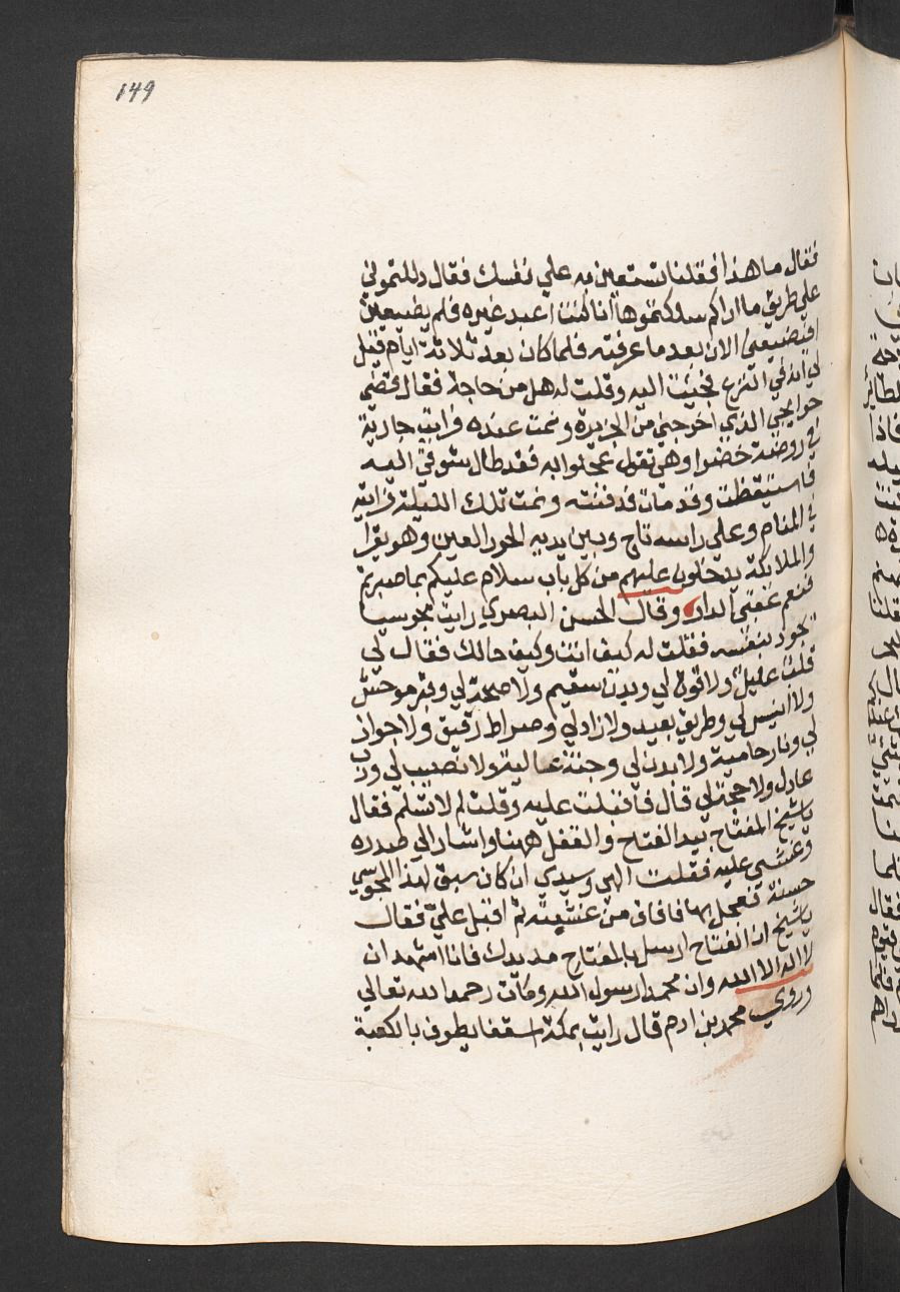 149
فقال ما هذا فقلنا تستعين به علي نفسك فقال دللتموني
علي طريق ما اراكم سلكتموها أنا كنت اعبد غيره فلم يضيعني
افيضيعني الان بعد ما عرفته فلما كان بعد ثلاثة ايام قيل
لي انه في النزع فجئت اليه وقلت له هل من حاجة فقال قضي
حوايجي الذي اخرجني من الجزيره ونمت عنده فرايت جارية
في روضة خضرا وهي تقول عجلوا به فقد طال شوقي اليه
فاستيقظت وقد مات فدفنته ونمت تلك الليلة فرايته
في المنام وعلي راسه تاج وبين يديه الحور العين وهو يقرا
والملايكة يدخلون عليهم من كل باب سلام عليكم بما صبرتم
فنعم عقبي الدار وقال الحسن البصري رايت مجوسيا
يجود بنفسه فقلت له كيف انت وكيف حالك فقال لي
قلب عليل ولا قوة لي وبدن سقيم ولا صحة لي وقبر موحش
ولا أنيس لي وطريق بعيد ولا زاد لي وصراط رقيق ولا جواز
لي ونار حامية ولا بدن لي وجنة عالية ولا نصيب لي ورب
عادل ولا حجة لي قال فاقبلت عليه وقلت لم لا تسلم فقال
يا شيخ المفتاح بيد الفتاح والقفل ههنا واشار الي صدره
وغشي عليه فقلت الهي وسيدي ان كان سبق لهذا المجوسي
حسنة فعجل بها فافاق من غشيته ثم اقبل علي فقال
يا شيخ ان الفتاح ارسل بالمفتاح مد يدك فانا اشهد ان
لا اله الا الله وان محمدا رسول الله ومات رحمه الله تعالي
وروي محمد بن ادم قال رايت بمكة اسقفا يطوف بالكعبة